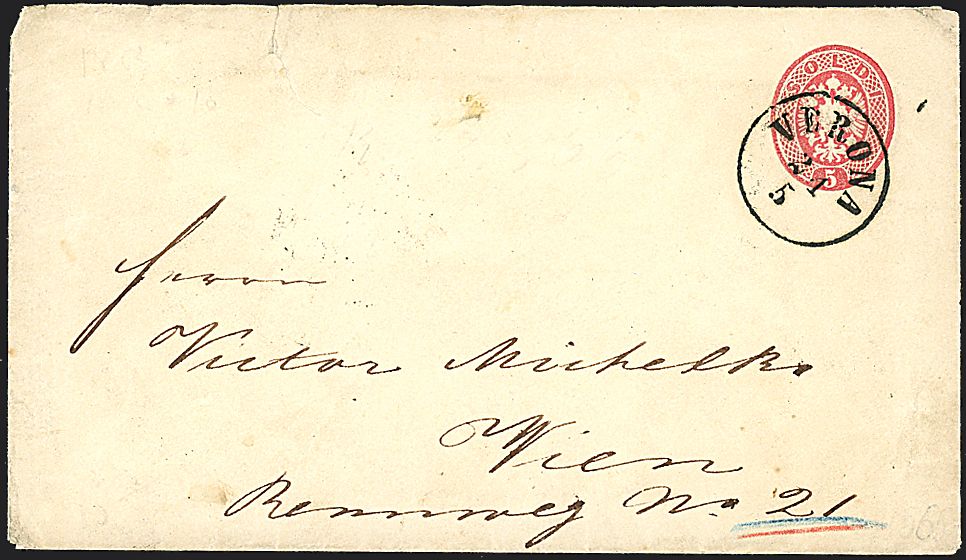 SOLDI
5
VERONA
21
5
Herrn
Victor Michelka
Wien
Rennweg No 21